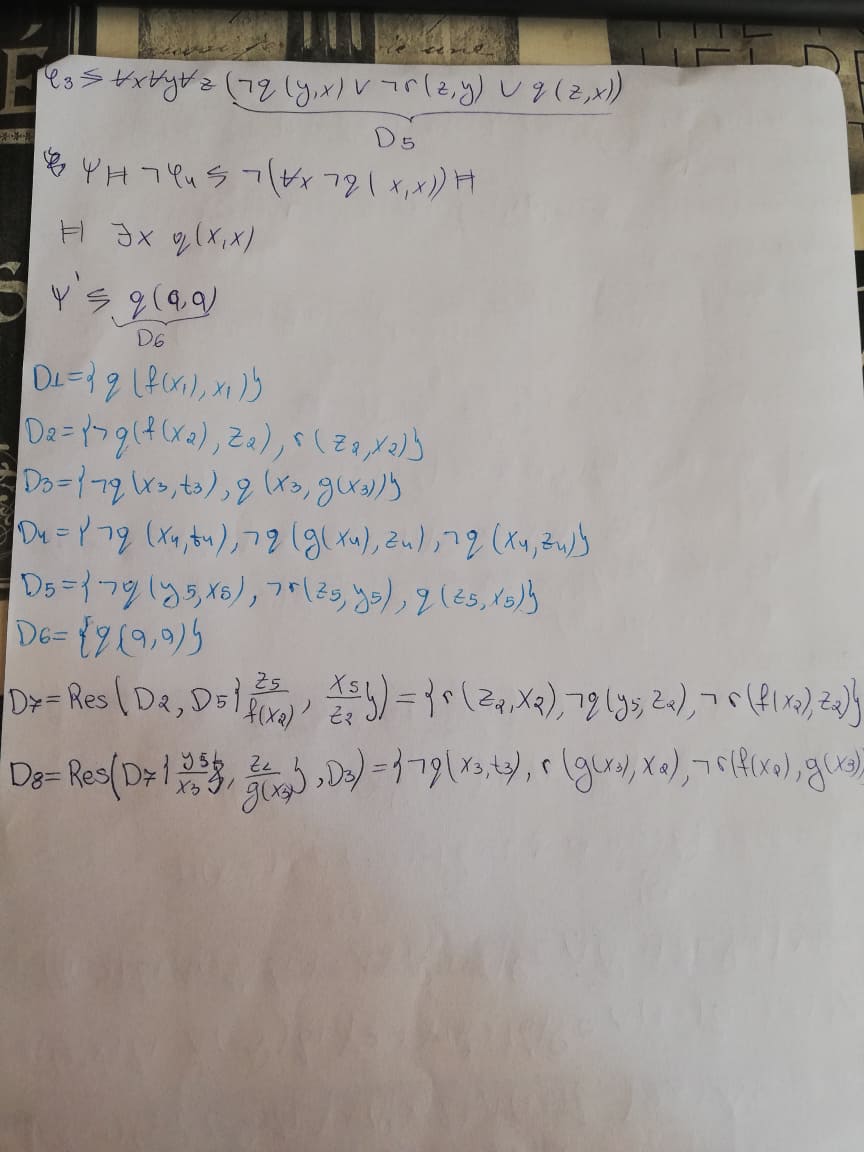 φ₃ ≤ ∀x∀y∀z (¬q(y,x) ∨ ¬r(z,y) ∨ q(z,x))
D5
ψ ⊨ ¬φ₄ ≤ ¬(∀x ¬q(x,x)) ⊨
⊨ ∃x q(x,x)
ψ' ≤ q(a,a)
D6
D1={q(f(x₁),x₁)}
D2={¬q(f(x₂),z₂),r(z₂,x₂)}
D3={¬q(x₃,t₃),q(x₃,g(x₃))}
D4={¬q(x₄,t₄),¬q(g(x₄),z₄),¬q(x₄,z₄)}
D5={¬q(y₅,x₅),¬r(z₅,y₅),q(z₅,x₅)}
D6={q(a,a)}
D7=Res(D2,D5{z₅/f(x₂), x₅/z₂})={r(z₂,x₂),¬q(y₅,z₂),¬r(f(x₂),z₂)}
D8=Res(D7{y₅/x₃, z₂/g(x₃)},D3)={¬q(x₃,t₃),r(g(x₃),x₂),¬r(f(x₂),g(x₃)